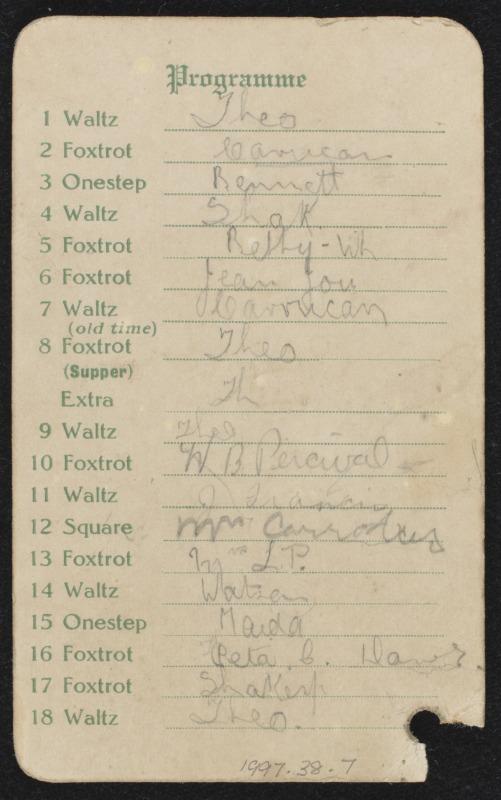 Programme
1 Waltz Theo
2 Foxtrot
3 Onestep Bennett
4 Waltz Shak
5 Foxtrot
6 Foxtrot Jean
7 Waltz
(old time)
8 Foxtrot Theo
(Supper)
Extra Th
9 Waltz Theo
10 Foxtrot W B Percival
11 Waltz
12 Square
13 Foxtrot L.P.
14 Waltz Watson
15 Onestep Maida
16 Foxtrot Peta
17 Foxtrot Shakesp
18 Waltz Theo.
1997.38.7